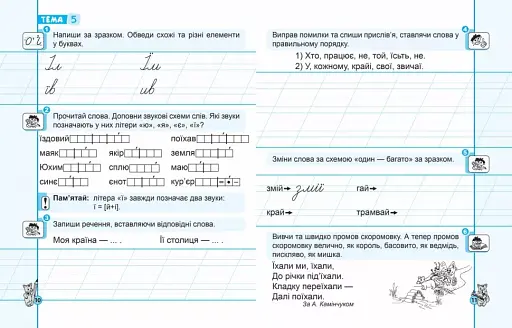 ТЕМА 5
1
Напиши за зразком. Обведи схожі та різні елементи
у буквах.
2
Прочитай слова. Доповни звукові схеми слів. Які звуки
позначають у них літери «ю», «я», «є», «ї»?
їздовий поїхав
маяк якір земля
Юхим сплю маю
синє єнот кур'єр
Пам'ятай: літера «ї» завжди позначає два звуки:
ї = [й+і].
3
Запиши речення, вставляючи відповідні слова.
Моя країна — ... . Її столиця — ... .
10
4
Виправ помилки та спиши прислів'я, ставлячи слова у
правильному порядку.
1) Хто, працює, не, той, їсьть, не.
2) У, кожному, крайі, свої, звичаї.
5
Зміни слова за схемою «один — багато» за зразком.
змій → змії гай →
край → трамвай →
6
Вивчи та швидко промов скоромовку. А тепер промов
скоромовку велично, як король, басовито, як ведмідь,
пискляво, як мишка.
Їхали ми, їхали,
До річки під'їхали.
Кладку переїхали —
Далі поїхали.
За А. Камінчуком
11